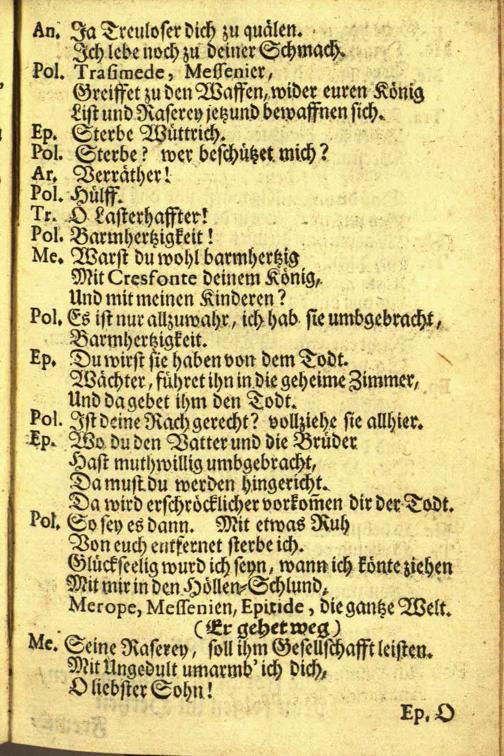 An. Ja Treuloser dich zu quälen.
Ich lebe noch zu deiner Schmach.
Pol. Trasimede, Messenier,
Greiffet zu den Waffen, wider euren König
List und Raserey jetzund bewaffnen sich.
Ep. Sterbe Wüttrich.
Pol. Sterbe? wer beschützet mich?
Ar, Verräther!
Pol. Hülff.
Tr. O Lasterhaffter!
Pol. Barmhertzigkeit!
Me. Warst du wohl barmhertzig
Mit Cresfonte deinem König,
Und mit meinen Kinderen?
Pol. Es ist nur allzuwahr, ich hab sie umbgebracht,
Barmhertzigkeit.
Ep. Du wirst sie haben von dem Todt.
Wächter, führet ihn in die geheime Zimmer,
Und da gebet ihm den Todt.
Pol. Ist deine Rach gerecht? vollziehe sie allhier.
Ep. Wo du den Vatter und die Brüder
Hast muthwillig umbgebracht,
Da must du werden hingericht.
Da wird erschröcklicher vorkom̄en dir der Todt.
Pol. So sey es dann. Mit etwas Ruh
Von euch entfernet sterbe ich.
Glückseelig wurd ich seyn, wann ich könte ziehen
Mit mir in den Höllen-Schlund,
Merope, Messenien, Epitide, die gantze Welt.
(Er gehet weg)
Me. Seine Raserey, soll ihm Gesellschafft leisten.
Mit Ungedult umarmb' ich dich,
O liebster Sohn!
Ep. O